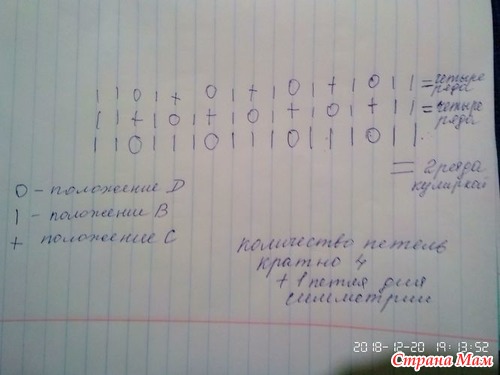 | | 0 | + | 0 | + | 0 | + | 0 | | = четыре ряда
| | + | 0 | + | 0 | + | 0 | + | | = четыре ряда
| | 0 | | | 0 | | | 0 | | | 0 | |
= 2 ряда кулиркой
0 - положение D
| - положение В
+ положение С
количество петель
кратно 4
+ 1 петля для
симметрии
2018-12-20 19:13:52
Страна Мам